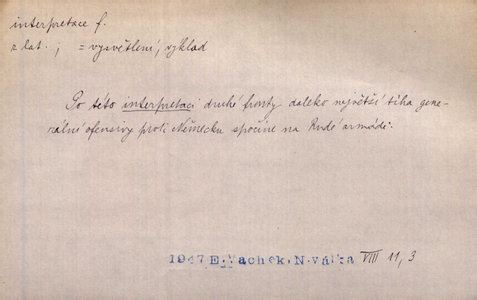 interpretace f.
z lat. ; = vysvětlení, výklad
Po této interpretaci druhé fronty daleko největší tíha gene-
rální ofensivy proti Německu spočine na Rudé armádě.
1947 E.Vachek, N.válka VIII 11,3